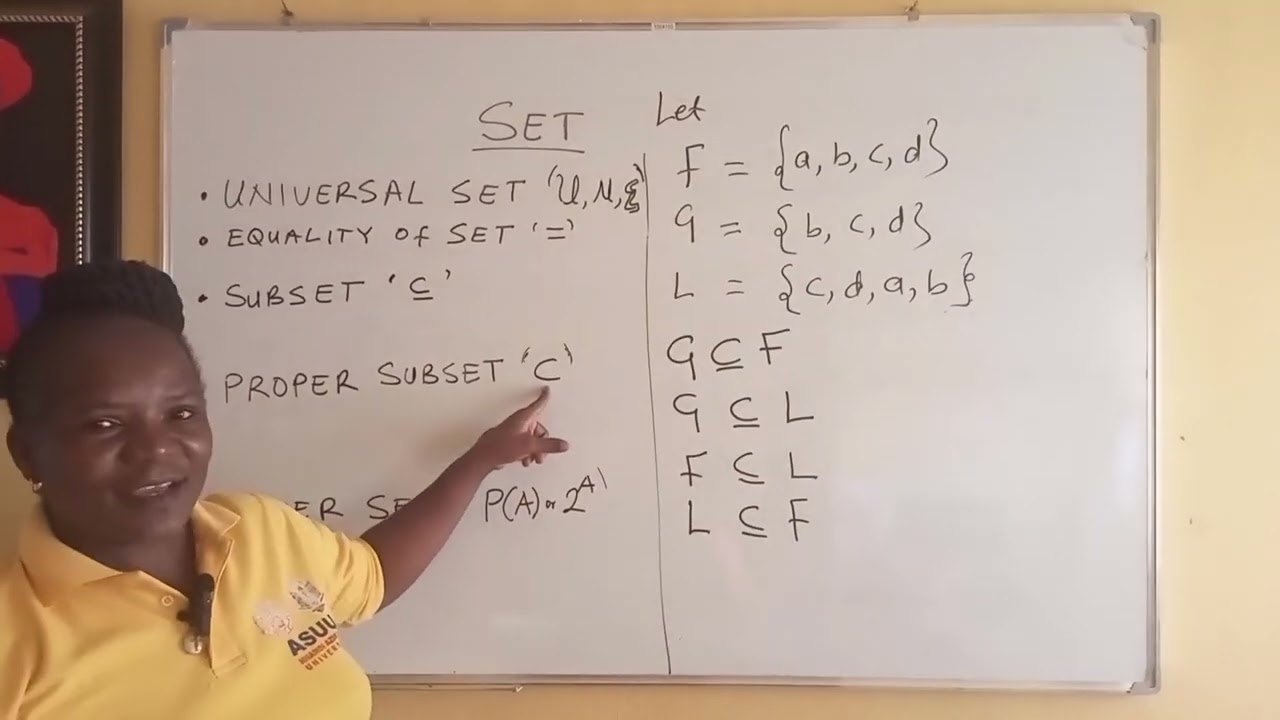 SET
• UNIVERSAL SET 'U, μ, ξ'
• EQUALITY OF SET '='
• SUBSET '⊆'
PROPER SUBSET '⊂'
P(A) or 2^A'
Let
F = {a, b, c, d}
G = {b, c, d}
L = {c, d, a, b}
G ⊆ F
G ⊆ L
F ⊆ L
L ⊆ F
ASUU